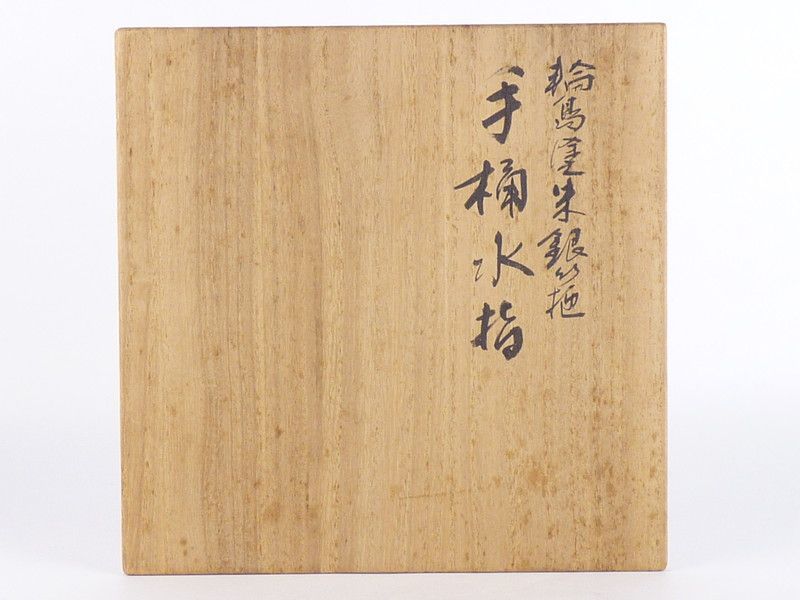 輪島塗朱銀箔
手桶水指